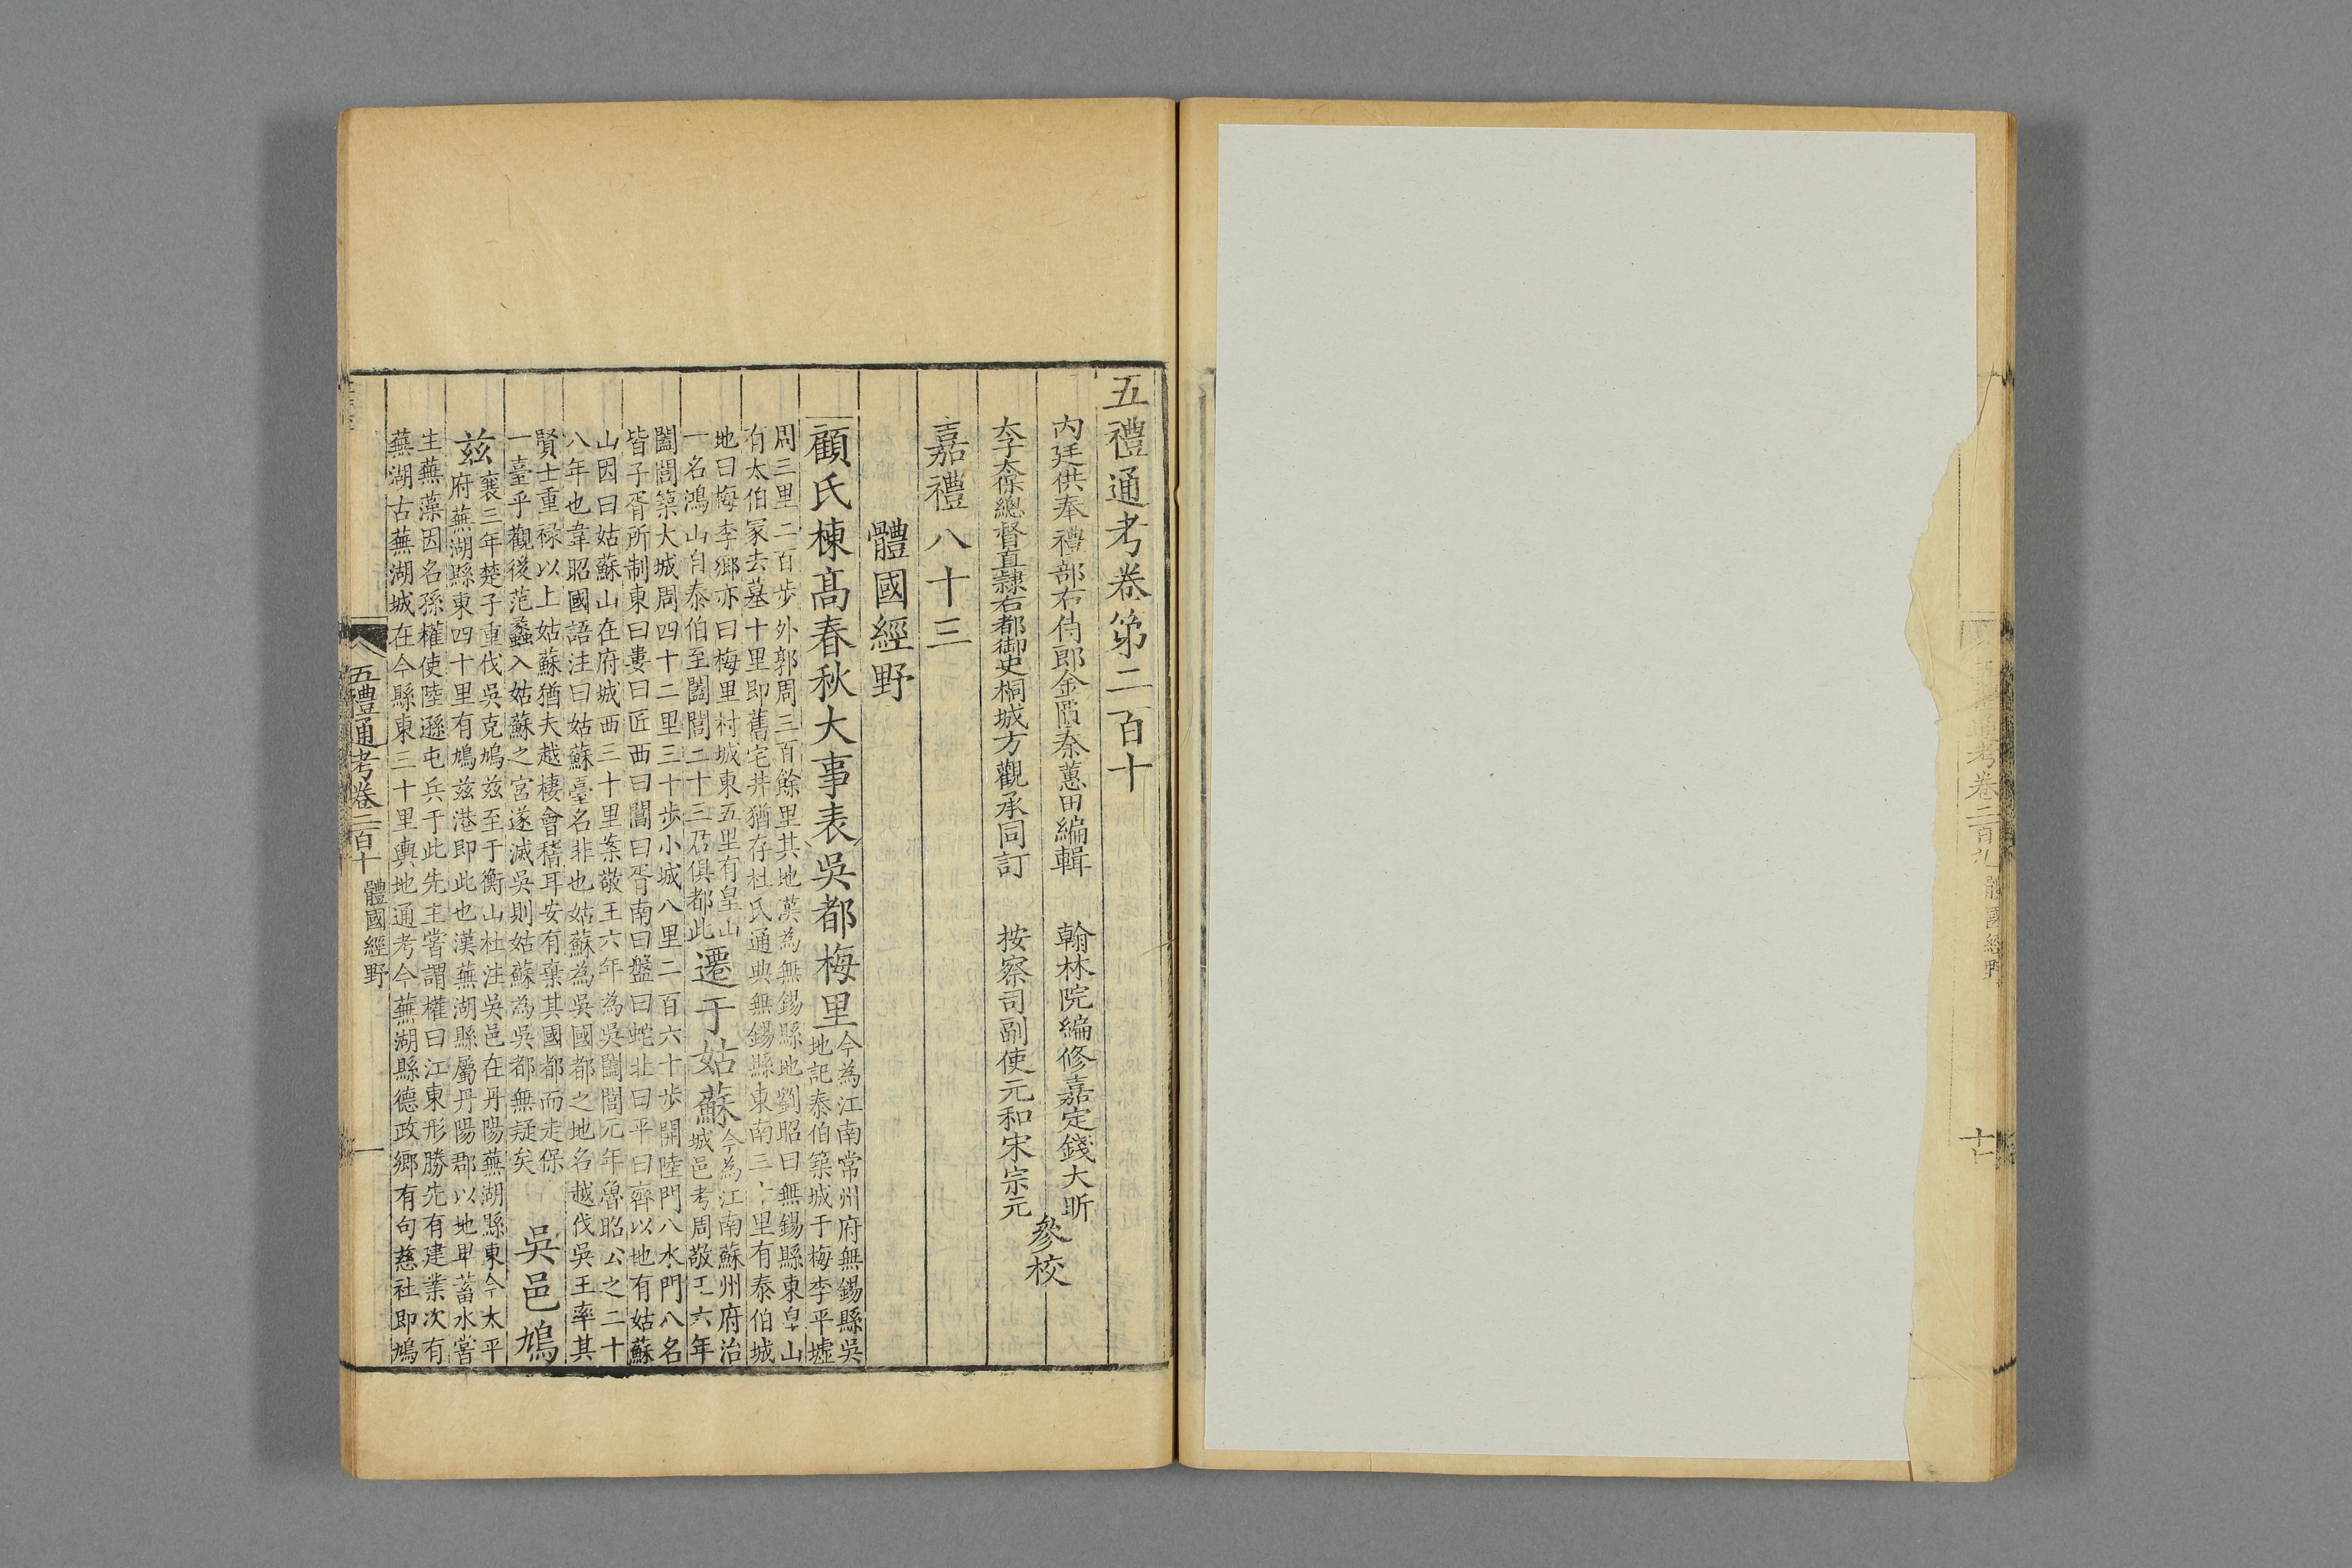 五禮通考卷第二百十
內廷供奉禮部右侍郎金匱秦蕙田編輯 翰林院編修嘉定錢大昕
太子太保總督直隸右都御史桐城方觀承同訂 按察司副使元和宋宗元
參校
嘉禮八十三
體國經野
顧氏棟高春秋大事表吳都梅里
今為江南常州府無錫縣吳
地記泰伯築城于梅李平墟
周三里二百步外郭周三百餘里其地漢為無錫縣地劉昭曰無錫縣東皇山
有太伯冢去墓十里即舊宅井猶存杜氏通典無錫縣東南三十里有泰伯城
地曰梅李鄉亦曰梅里村城東五里有皇山
一名鴻山自泰伯至闔閭二十三君俱都此
遷于姑蘇
今為江南蘇州府治
城邑考周敬王六年
闔閭築大城周四十二里三十步小城八里二百六十步開陸門八水門八名
皆子胥所制東曰婁曰匠西曰閶曰胥南曰盤曰蛇北曰平曰齊以地有姑蘇
山因曰姑蘇山在府城西三十里案敬王六年為吳闔閭元年魯昭公之二十
八年也韋昭國語注曰姑蘇臺名非也姑蘇為吳國都之地名越伐吳王率其
賢士重祿以上姑蘇猶夫越棲會稽耳安有棄其國都而走保
一臺乎觀後范蠡入姑蘇之宮遂滅吳則姑蘇為吳都無疑矣
吳邑鳩
茲
襄三年楚子重伐吳克鳩茲至于衡山杜注吳邑在丹陽蕪湖縣東今太平
府蕪湖縣東四十里有鳩茲港即此也漢蕪湖縣屬丹陽郡以地卑蓄水嘗
生蕪藻因名孫權使陸遜屯兵于此先主嘗謂權曰江東形勝先有建業次有
蕪湖古蕪湖城在今縣東三十里輿地通考今蕪湖縣德政鄉有句慈社即鳩
五禮通考卷二百十 體國經野 一
通考卷二百九 體國經野